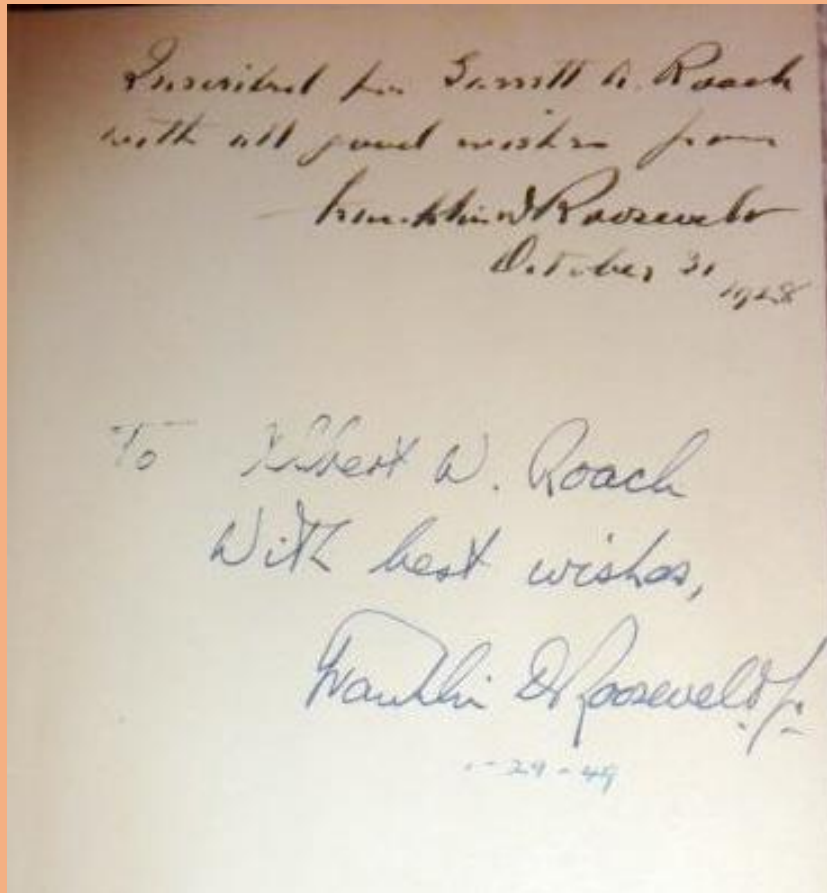 Inscribed for Garrett A. Roach
with all good wishes from
Franklin D Roosevelt
October 31
1928
To Albert W. Roach
With best wishes,
Franklin D Roosevelt Jr.
-29-49